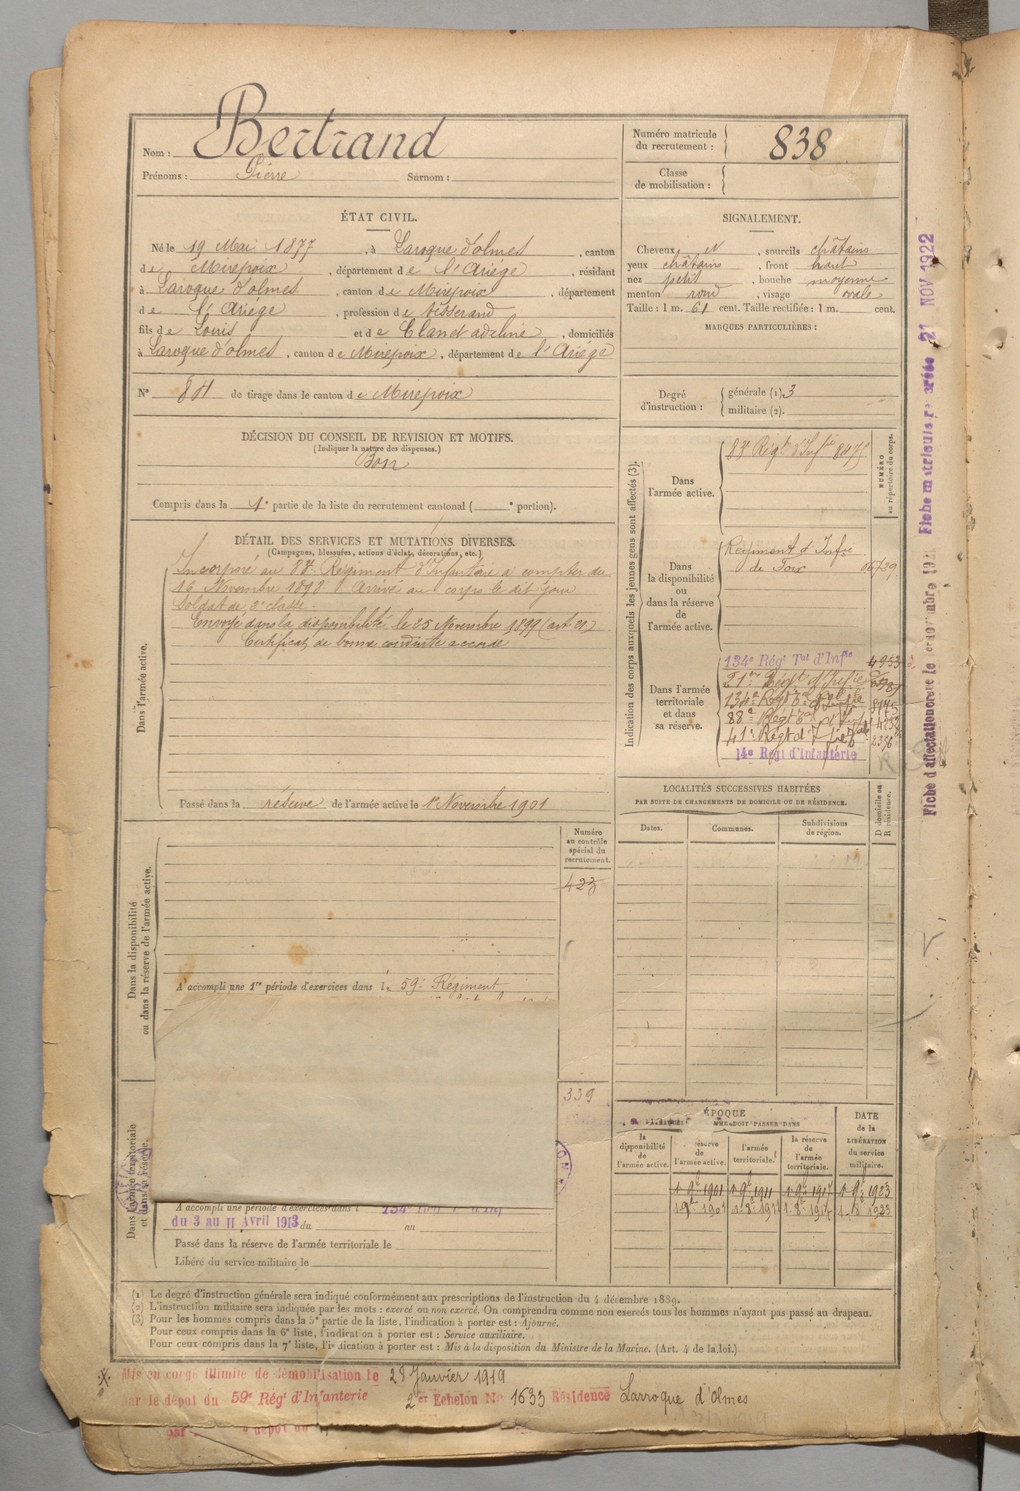 Nom : Bertrand
Prénoms : Pierre Surnom :
Numéro matricule
du recrutement : 838
Classe
de mobilisation :
ÉTAT CIVIL.
Né le 19 Mai 1877, à Laroque d'olmes, canton
de Mirepoix, département de l'Ariège, résidant
à Laroque d'olmes, canton de Mirepoix, département
de l'Ariège, profession de tisserand
fils de Louis et de Clanet adeline, domiciliés
à Laroque d'olmes, canton de Mirepoix, département de l'Ariège
N° de tirage dans le canton de Mirepoix
SIGNALEMENT.
Cheveux et, sourcils châtains
yeux châtains, front haut
nez petit, bouche moyenne
menton rond, visage ovale
Taille : 1 m. 61 cent. Taille rectifiée : 1 m. cent.
MARQUES PARTICULIÈRES :
Degré
d'instruction :
générale (1). 3
militaire (2).
DÉCISION DU CONSEIL DE REVISION ET MOTIFS.
(Indiquer la nature des dispenses.)
Bon
Compris dans la 1e partie de la liste du recrutement cantonal ( e portion).
DÉTAIL DES SERVICES ET MUTATIONS DIVERSES.
(Campagnes, blessures, actions d'éclat, décorations, etc.)
Dans l'armée active.
Incorporé au 83e Régiment d'Infanterie à compter du
16 Novembre 1898. Arrivé au corps le dit jour
Soldat de 2e classe.
Envoyé dans la disponibilité le 25 Novembre 1899 (art 21)
Certificat de bonne conduite accordé
Passé dans la réserve de l'armée active le 1er Novembre 1901
Indication des corps auxquels les jeunes gens sont affectés (3).
NUMÉRO
au répertoire du corps.
Dans
l'armée active.
83e Régt d'Infie
Dans
la disponibilité
ou
dans la réserve
de
l'armée active.
Régiment d'Infie
de Foix
Dans l'armée
territoriale
et dans
sa réserve.
134e Régt Tal d'Infie
134e Regt
88e Régt
41e Régt
14e Régt d'Infanterie
LOCALITÉS SUCCESSIVES HABITÉES
PAR SUITE DE CHANGEMENTS DE DOMICILE OU DE RÉSIDENCE.
Dates. Communes. Subdivisions
de région.
D domicile ou
R résidence.
Dans la disponibilité
ou dans la réserve de l'armée active.
Numéro
au contrôle
spécial du
recrutement.
423
A accompli une 1re période d'exercices dans le 59e Régiment
339
Dans l'armée territoriale
et dans sa réserve.
A accompli une période d'exercices dans l 134e
du 3 au 11 Avril 1913 du au
Passé dans la réserve de l'armée territoriale le
Libéré du service militaire le
ÉPOQUE
DOIT PASSER DANS
la
disponibilité
de
l'armée active.
réserve
de
l'armée active.
l'armée
territoriale.
la réserve
de
l'armée
territoriale.
DATE
de la
LIBÉRATION
du service
militaire.
(1) Le degré d'instruction générale sera indiqué conformément aux prescriptions de l'instruction du 4 décembre 1889.
(2) L'instruction militaire sera indiquée par les mots : exercé ou non exercé. On comprendra comme non exercés tous les hommes n'ayant pas passé au drapeau.
(3) Pour les hommes compris dans la 5e partie de la liste, l'indication à porter est : Ajourné.
Pour ceux compris dans la 6e liste, l'indication à porter est : Service auxiliaire.
Pour ceux compris dans la 7e liste, l'indication à porter est : Mis à la disposition du Ministre de la Marine. (Art. 4 de la loi.)
Mis en congé illimité de démobilisation le 28 Janvier 1919
par le dépôt du 59e Régt d'Infanterie 2e Echelon No 1633 Résidence Larroque d'Olmes
21 NOV 1922